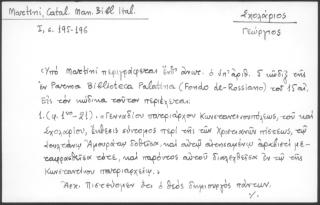 Martini, Catal. Man. Bibl Ital.
I, c. 195-196
Σχολάριος
Γεώργιος
Ὑπὸ Martini περιγράφεται ἔνθ' ἀνωτ. ὁ ὑπ' ἀριθ. 5 κῶδιξ τῆς
ἐν Parma Biblioteca Palatina (Fondo de-Rossiano) τοῦ 15 αἰ.
Εἰς τὸν κώδικα τοῦτον περιέχεται:
1. (φ. 1-21). «Γενναδίου πατριάρχου Κωνσταντινουπόλεως, τοῦ καὶ
Σχολαρίου, ἔκθεσις σύντομος περὶ τῆς τῶν Χριστιανῶν πίστεως, τῷ
σουλτάνῳ Ἀμουράτῃ δοθεῖσα, καὶ αὐτῷ αἰτησαμένῳ ἀραβιστὶ με-
ταφρασθεῖσα τότε, καὶ παρόντος αὐτοῦ διαλεχθεῖσα ἐν τῷ τῆς
Κωνσταντίνου πατριαρχείῳ.»
Ἀρχ. Πιστεύομεν ὅτι ὁ θεὸς δημιουργὸς πάντων.
./.